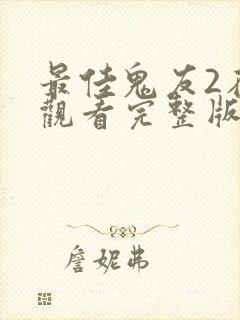 最佳鬼友2
觀看完整版
詹妮弗